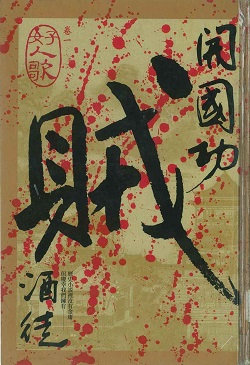 開國功
賊
卷
好人歌
酒徒